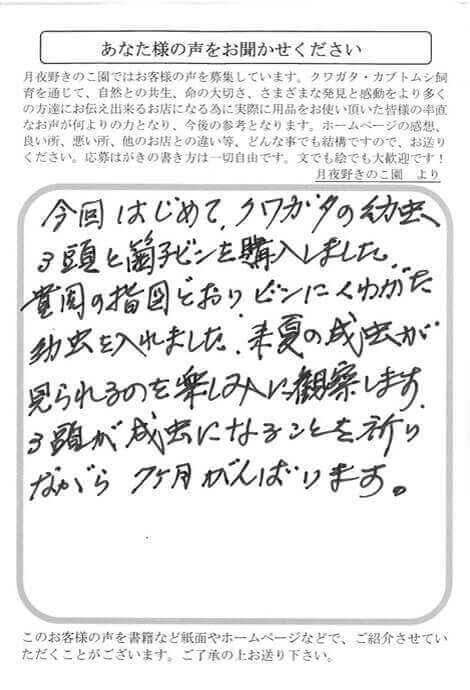 あなた様の声をお聞かせください
月夜野きのこ園ではお客様の声を募集しています。クワガタ・カブトムシ飼
育を通じて、自然との共生、命の大切さ、さまざまな発見と感動をより多く
の方達にお伝え出来るお店になる為に実際に用品をお使い頂いた皆様の率直
なお声が何よりの力となり、今後の参考となります。ホームページの感想、
良い所、悪い所、他のお店との違い等、どんな事でも結構ですので、お送り
ください。応募はがきの書き方は一切自由です。文でも絵でも大歓迎です！
月夜野きのこ園 より
今回はじめて、クワガタの幼虫
3頭と菌子ビンを購入しました。
貴園の指図どおりビンにくわがた
幼虫を入れました。来夏の成虫が
見られるのを楽しみに観察します。
3頭が成虫になることを祈り
ながら 7ヶ月がんばります。
このお客様の声を書籍など紙面やホームページなどで、ご紹介させてい
ただくことがございます。ご了承の上お送り下さい。